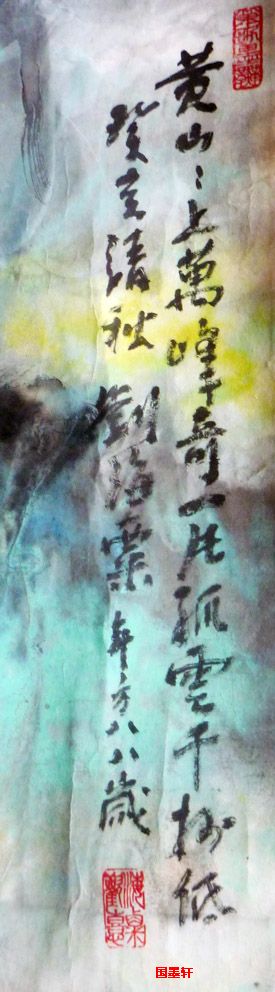 黄山〻上萬峰奇一片孤雲千樹低
癸亥清秋 劉海粟 年方八八歲
国墨轩